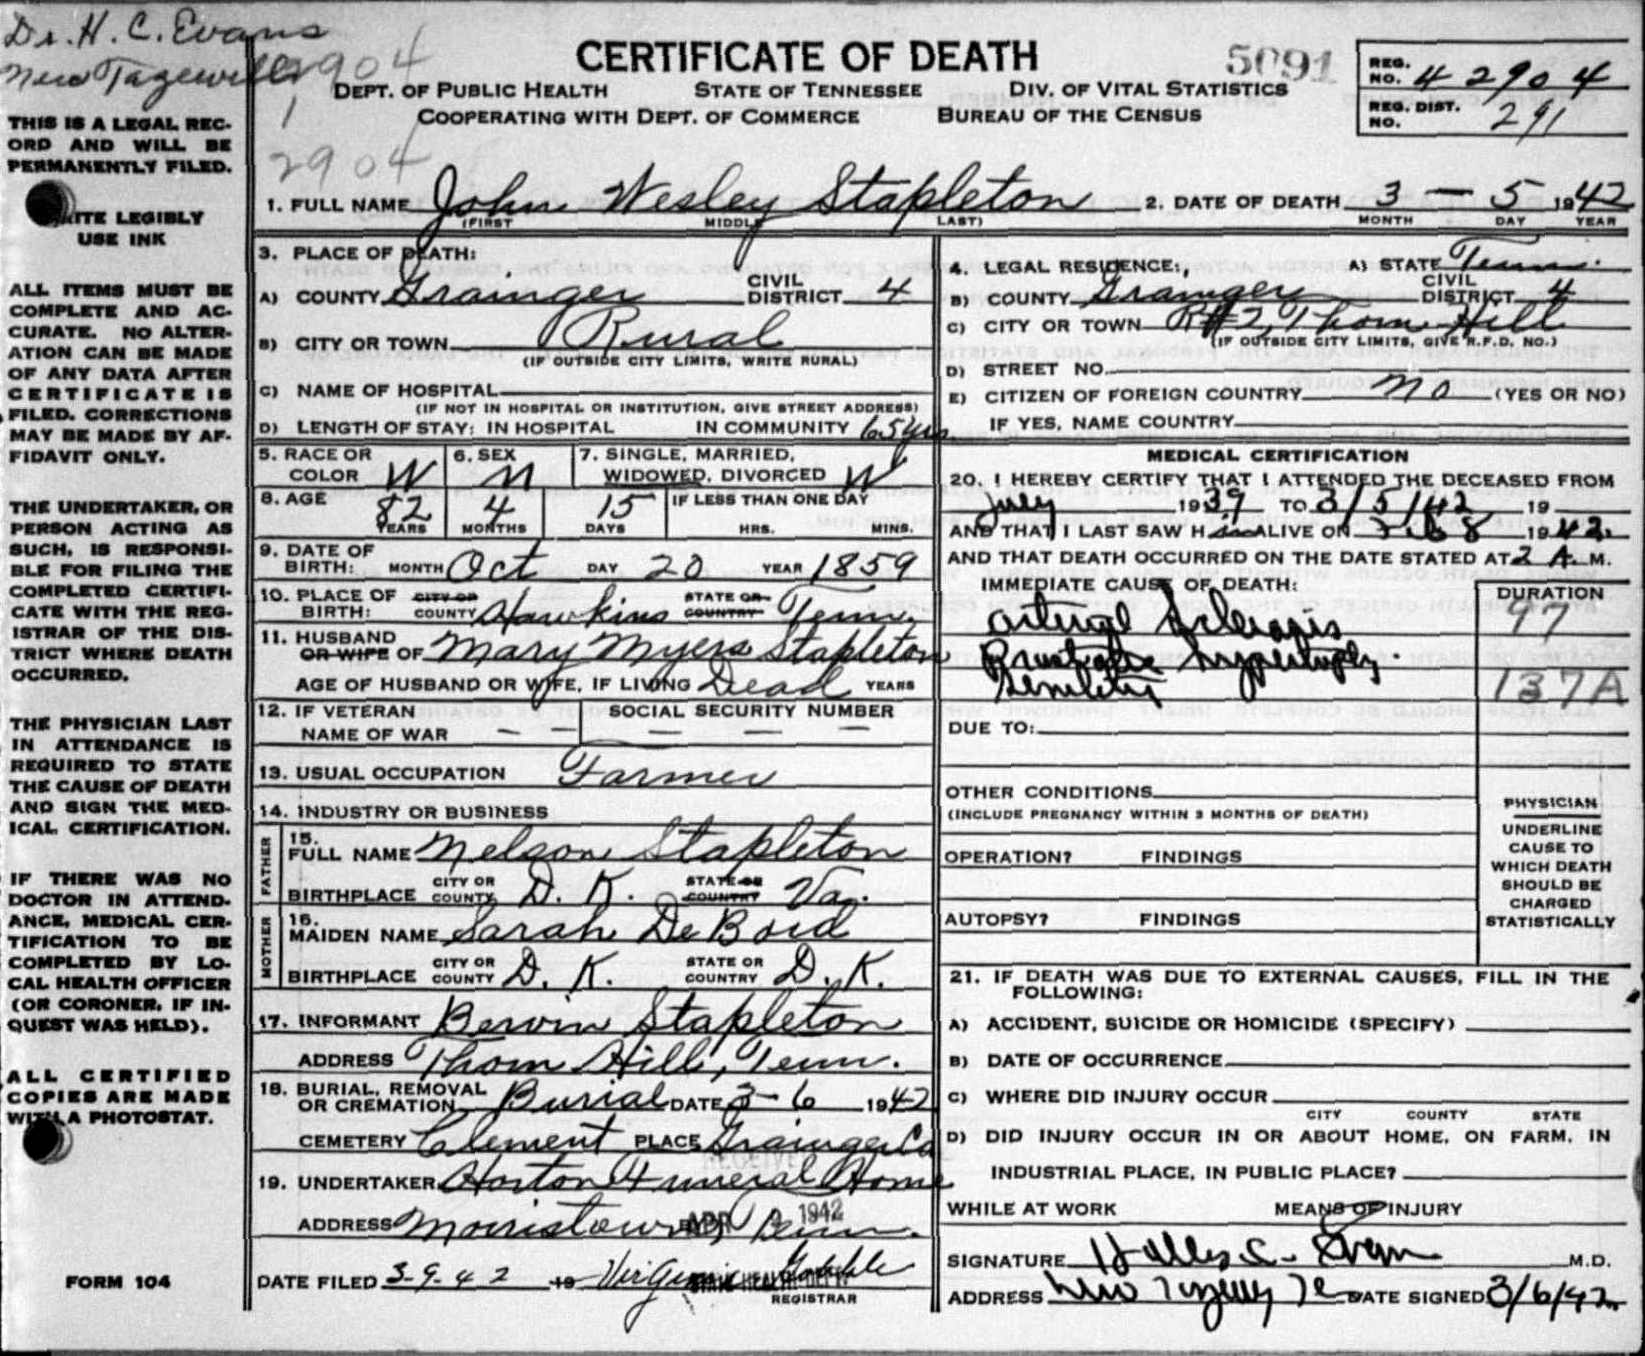 Dr. H. C. Evans
New Tazewell
2904
1
2904
CERTIFICATE OF DEATH
5091
DEPT. OF PUBLIC HEALTH STATE OF TENNESSEE DIV. OF VITAL STATISTICS
COOPERATING WITH DEPT. OF COMMERCE BUREAU OF THE CENSUS
REG. NO. 42904
REG. DIST. NO. 291
THIS IS A LEGAL REC-
ORD AND WILL BE
PERMANENTLY FILED.
WRITE LEGIBLY
USE INK
ALL ITEMS MUST BE
COMPLETE AND AC-
CURATE. NO ALTER-
ATION CAN BE MADE
OF ANY DATA AFTER
CERTIFICATE IS
FILED. CORRECTIONS
MAY BE MADE BY AF-
FIDAVIT ONLY.
THE UNDERTAKER, OR
PERSON ACTING AS
SUCH, IS RESPONSI-
BLE FOR FILING THE
COMPLETED CERTIFI-
CATE WITH THE REG-
ISTRAR OF THE DIS-
TRICT WHERE DEATH
OCCURRED.
THE PHYSICIAN LAST
IN ATTENDANCE IS
REQUIRED TO STATE
THE CAUSE OF DEATH
AND SIGN THE MED-
ICAL CERTIFICATION.
IF THERE WAS NO
DOCTOR IN ATTEND-
ANCE, MEDICAL CER-
TIFICATION TO BE
COMPLETED BY LO-
CAL HEALTH OFFICER
(OR CORONER, IF IN-
QUEST WAS HELD).
ALL CERTIFIED
COPIES ARE MADE
WITH A PHOTOSTAT.
FORM 104
1. FULL NAME John Wesley Stapleton 2. DATE OF DEATH 3 - 5 1942
(FIRST MIDDLE LAST) MONTH DAY YEAR
3. PLACE OF DEATH:
A) COUNTY Grainger CIVIL DISTRICT 4
B) CITY OR TOWN Rural
(IF OUTSIDE CITY LIMITS, WRITE RURAL)
C) NAME OF HOSPITAL
(IF NOT IN HOSPITAL OR INSTITUTION, GIVE STREET ADDRESS)
D) LENGTH OF STAY: IN HOSPITAL IN COMMUNITY 65 yrs.
4. LEGAL RESIDENCE: A) STATE Tenn.
B) COUNTY Grainger CIVIL DISTRICT 4
C) CITY OR TOWN R#2, Thorn Hill
(IF OUTSIDE CITY LIMITS, GIVE R.F.D. NO.)
D) STREET NO.
E) CITIZEN OF FOREIGN COUNTRY no (YES OR NO)
IF YES, NAME COUNTRY
5. RACE OR COLOR W 6. SEX M 7. SINGLE, MARRIED, WIDOWED, DIVORCED W
8. AGE 82 YEARS 4 MONTHS 15 DAYS IF LESS THAN ONE DAY HRS. MINS.
9. DATE OF BIRTH: MONTH Oct DAY 20 YEAR 1859
10. PLACE OF BIRTH: CITY OR COUNTY Hawkins STATE OR COUNTRY Tenn.
11. HUSBAND OR WIFE OF Mary Myers Stapleton
AGE OF HUSBAND OR WIFE, IF LIVING Dead YEARS
12. IF VETERAN NAME OF WAR — — SOCIAL SECURITY NUMBER — — —
13. USUAL OCCUPATION Farmer
14. INDUSTRY OR BUSINESS
FATHER
15. FULL NAME Nelson Stapleton
BIRTHPLACE CITY OR COUNTY D. K. STATE OR COUNTRY Va.
MOTHER
16. MAIDEN NAME Sarah De Bord
BIRTHPLACE CITY OR COUNTY D. K. STATE OR COUNTRY D. K.
17. INFORMANT Bervin Stapleton
ADDRESS Thorn Hill, Tenn.
18. BURIAL, REMOVAL OR CREMATION Burial DATE 3-6 1942
CEMETERY Clement PLACE Grainger Co
RECEIVED
19. UNDERTAKER Horton Funeral Home
ADDRESS Morristown, Tenn.
APR 1942
DATE FILED 3-9-42 19 Virginia REGISTRAR
MEDICAL CERTIFICATION
20. I HEREBY CERTIFY THAT I ATTENDED THE DECEASED FROM
July 1939 TO 3/5/42 19
AND THAT I LAST SAW H im ALIVE ON 1942.
AND THAT DEATH OCCURRED ON THE DATE STATED AT 2 A. M.
IMMEDIATE CAUSE OF DEATH: DURATION
97
Prostatic hypertrophy.
Senility 137A
DUE TO:
OTHER CONDITIONS
(INCLUDE PREGNANCY WITHIN 3 MONTHS OF DEATH)
OPERATION? FINDINGS
AUTOPSY? FINDINGS
PHYSICIAN
UNDERLINE
CAUSE TO
WHICH DEATH
SHOULD BE
CHARGED
STATISTICALLY
21. IF DEATH WAS DUE TO EXTERNAL CAUSES, FILL IN THE
FOLLOWING:
A) ACCIDENT, SUICIDE OR HOMICIDE (SPECIFY)
B) DATE OF OCCURRENCE
C) WHERE DID INJURY OCCUR
CITY COUNTY STATE
D) DID INJURY OCCUR IN OR ABOUT HOME, ON FARM, IN
INDUSTRIAL PLACE, IN PUBLIC PLACE?
WHILE AT WORK MEANS OF INJURY
SIGNATURE C. Evans M.D.
ADDRESS New Tazewell Te DATE SIGNED 3/6/42